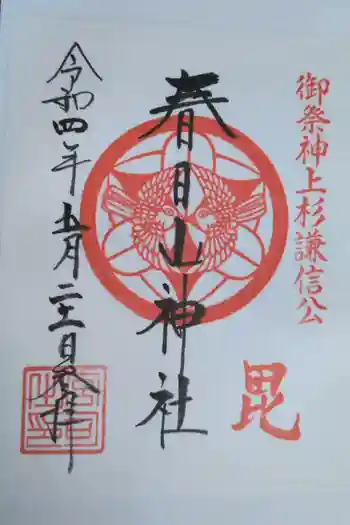 御祭神上杉謙信公
毘
春日山神社
令和四年五月二十二日参拝